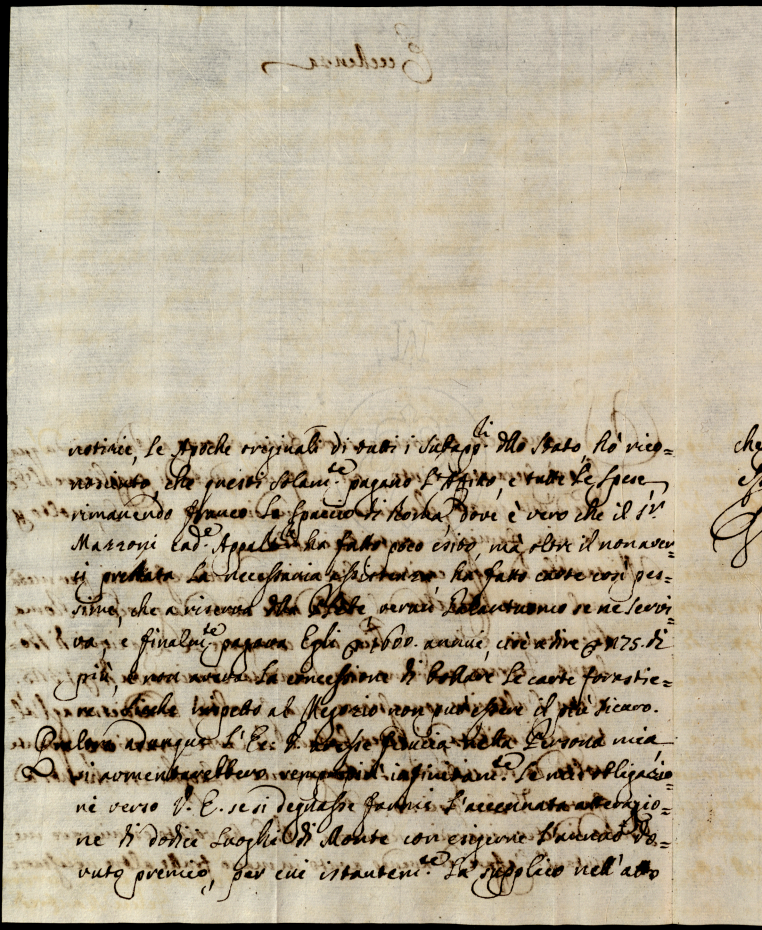 Eccellenza
notizie, le Apoche originali di tutti i Subapp.ti dello Stato, hò rico=
nosciuto, che questi solam.te pagano l'Affitto, e tutte le spese,
rimanendo franco lo spaccio di Roma, dove è vero che il Sr.
Mazzoni ha fatto poco esito, mà oltre il non aver=
si prestata la necessaria assistenza, ha fatto carte così pes=
sime, che a riserva della Plebe verun Galantuomo se ne servi=
va, e finalm.te pagava Egli 1600. annui, cioè a dire 175. di
più, e non aveva la concessione di bollare le carte forastie=
re, che rispetto al Negozio non può essere il più sicuro.
Qualora adunque l'Ec. V. avesse fiducia nella Persona mia,
si aumentarebbero infinitam.te le mie obligazio=
ni verso V. E. se si degnasse farmi l'accennata
ne di dodici Luoghi di Monte con esigerne l'annuo do=
vuto premio, per cui istantem.te La supplico nell'atto
che